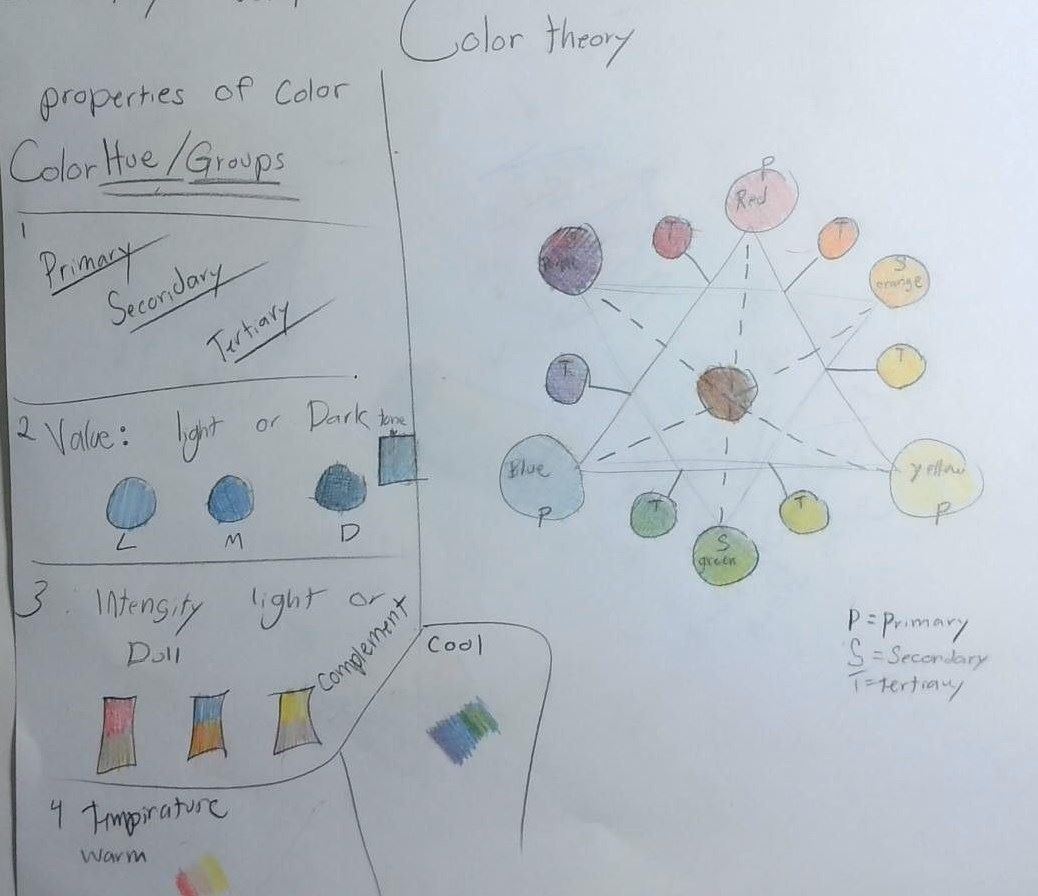 Color theory
properties of Color
Color Hue/Groups
1
Primary
Secoridary
Tertiary
2 Value: light or Dark tone
L M D
3. Intensity light or
Doll
complement
Cool
4 Tmpirature
warm
P
Red
T
T
S
orange
T
T
Blue
P
yellow
P
T
T
S
green
P = Primary
S = Secondary
T = tertiary